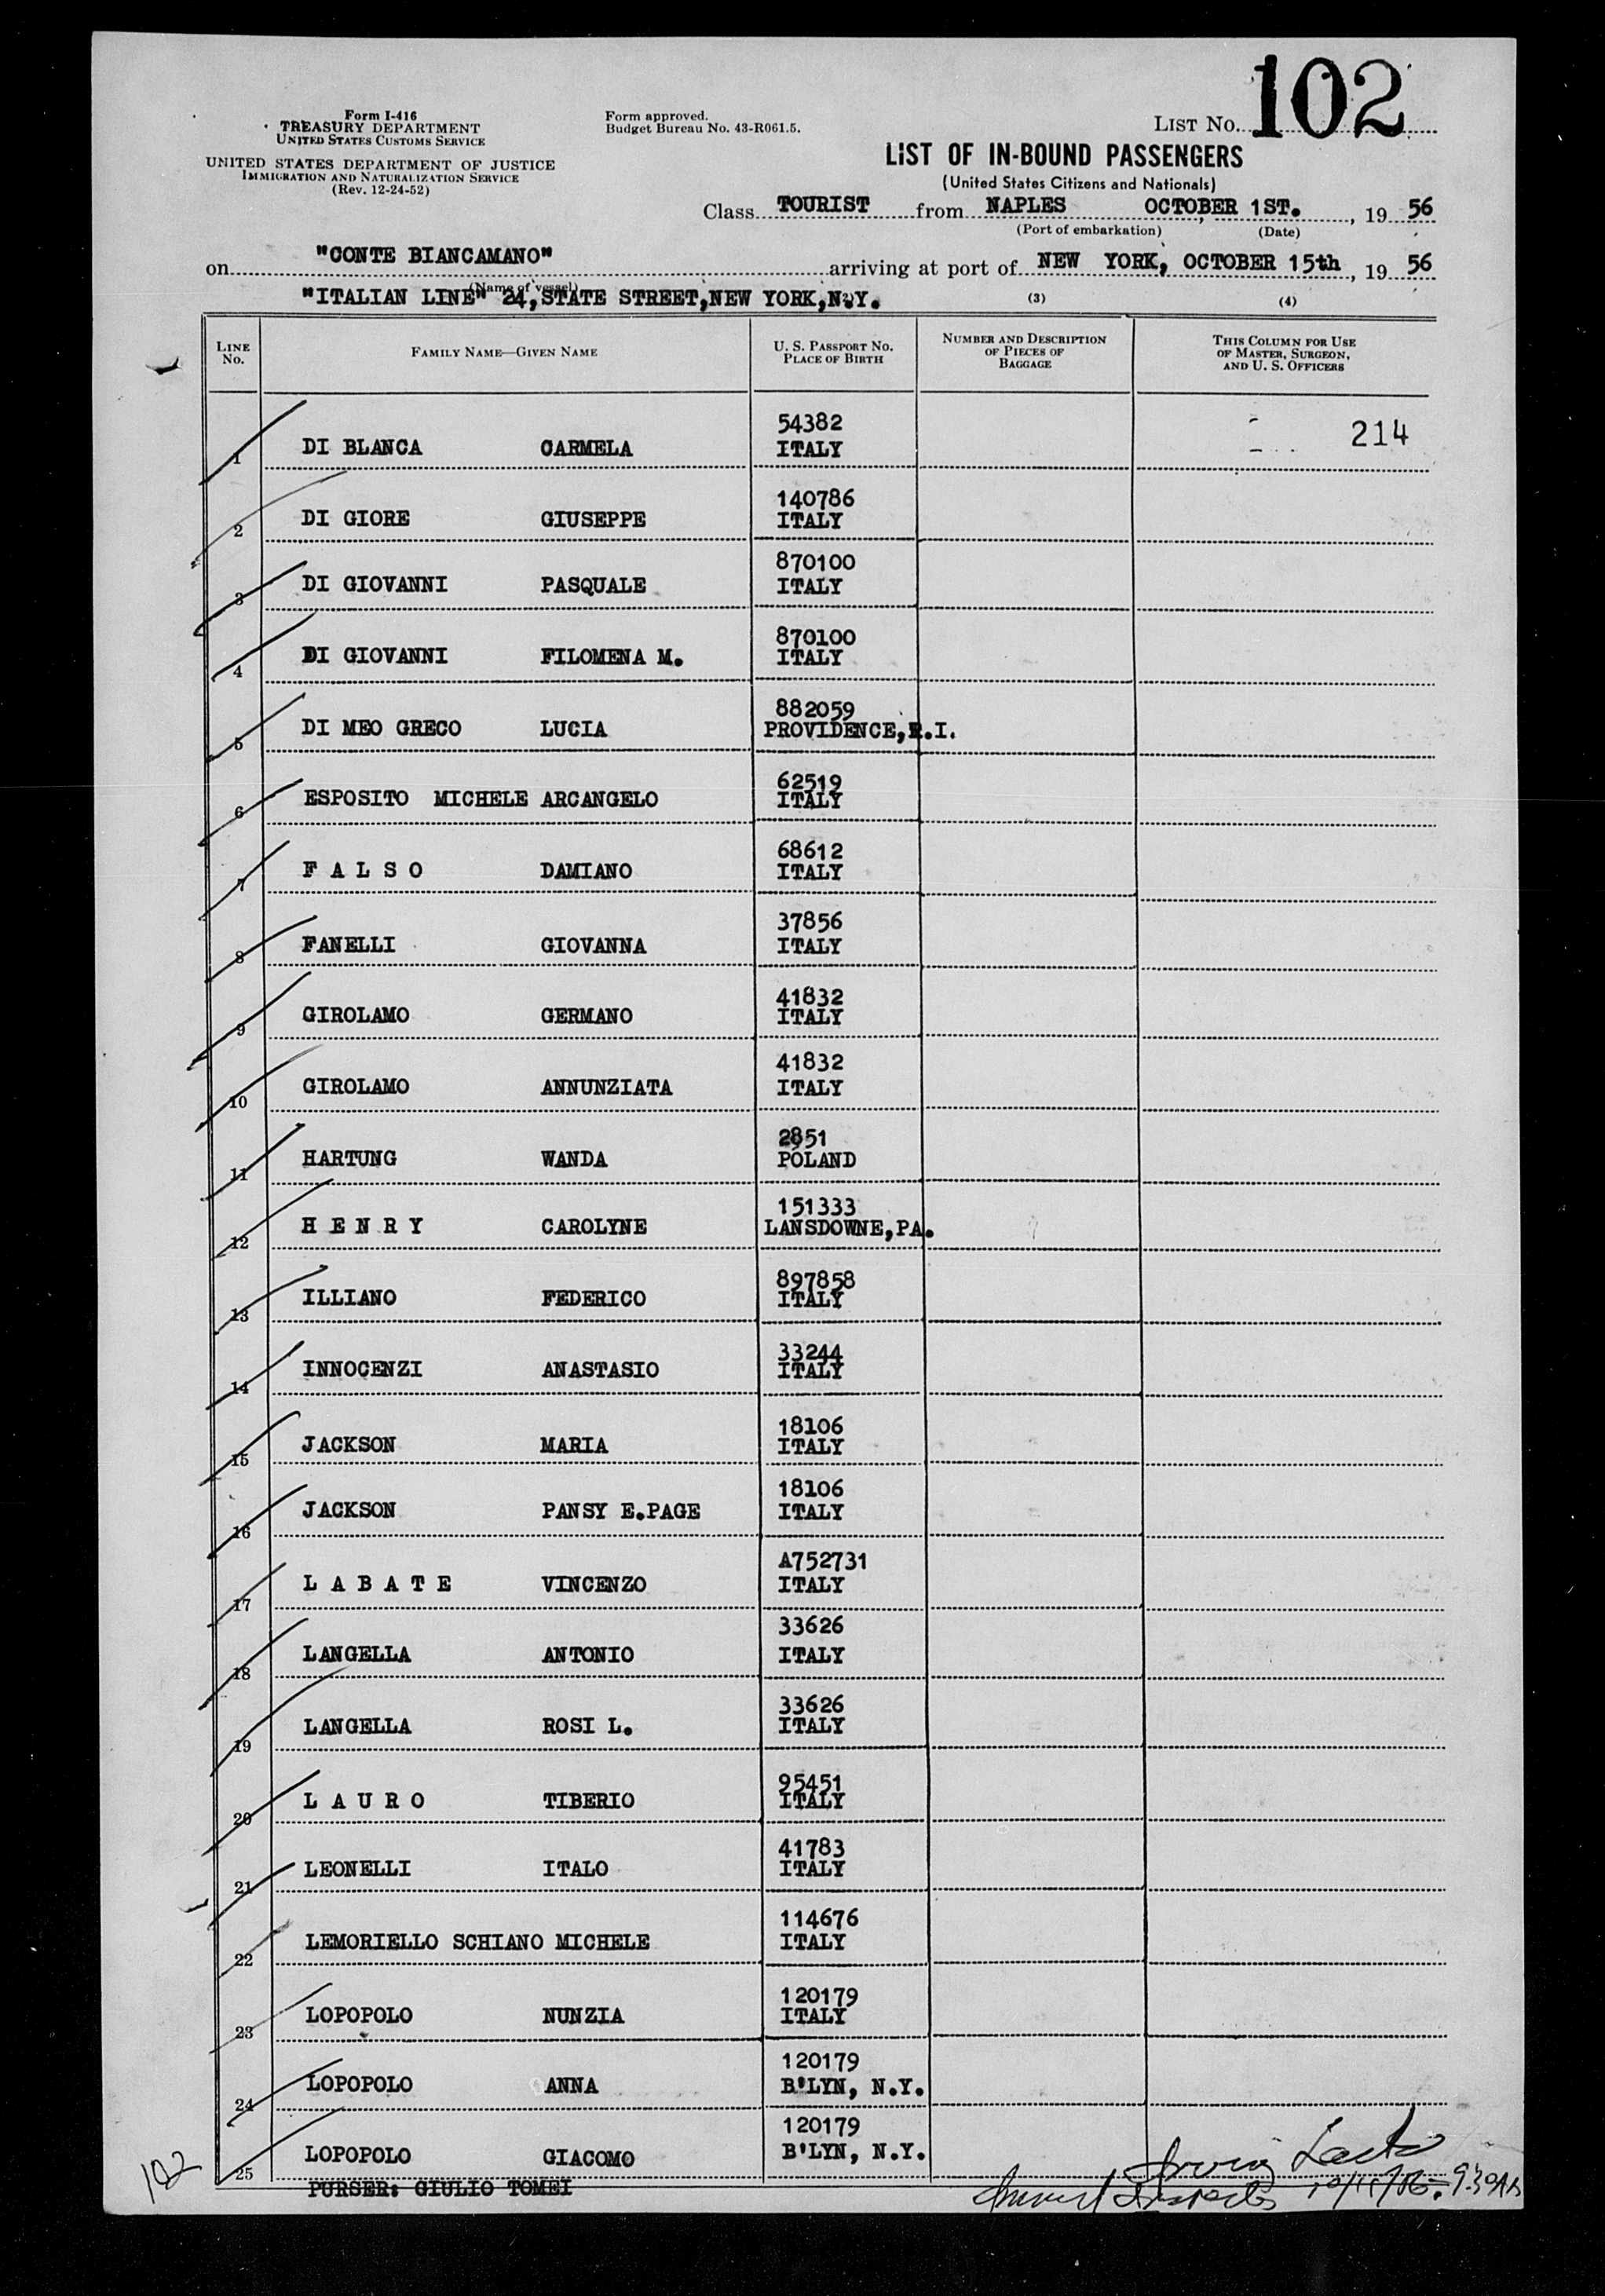 102
Form I-416
TREASURY DEPARTMENT
UNITED STATES CUSTOMS SERVICE
UNITED STATES DEPARTMENT OF JUSTICE
IMMIGRATION AND NATURALIZATION SERVICE
(Rev. 12-24-52)
Form approved.
Budget Bureau No. 43-R061.5.
LIST NO.
LIST OF IN-BOUND PASSENGERS
(United States Citizens and Nationals)
Class TOURIST from NAPLES OCTOBER 1ST., 19 56
(Port of embarkation) (Date)
on "CONTE BIANCAMANO" arriving at port of NEW YORK, OCTOBER 15th, 19 56
(Name of vessel)
"ITALIAN LINE" 24,STATE STREET,NEW YORK,N.Y. (3) (4)
LINE No. FAMILY NAME—GIVEN NAME U. S. PASSPORT NO. PLACE OF BIRTH NUMBER AND DESCRIPTION OF PIECES OF BAGGAGE THIS COLUMN FOR USE OF MASTER, SURGEON, AND U. S. OFFICERS
54382 214
1 DI BLANCA CARMELA ITALY
140786
2 DI GIORE GIUSEPPE ITALY
870100
3 DI GIOVANNI PASQUALE ITALY
870100
4 DI GIOVANNI FILOMENA M. ITALY
882059
5 DI MEO GRECO LUCIA PROVIDENCE,R.I.
62519
6 ESPOSITO MICHELE ARCANGELO ITALY
68612
7 F A L S O DAMIANO ITALY
37856
8 FANELLI GIOVANNA ITALY
41832
9 GIROLAMO GERMANO ITALY
41832
10 GIROLAMO ANNUNZIATA ITALY
2851
11 HARTUNG WANDA POLAND
151333
12 H E N R Y CAROLYNE LANSDOWNE,PA.
897858
13 ILLIANO FEDERICO ITALY
33244
14 INNOCENZI ANASTASIO ITALY
18106
15 JACKSON MARIA ITALY
18106
16 JACKSON PANSY E.PAGE ITALY
A752731
17 L A B A T E VINCENZO ITALY
33626
18 LANGELLA ANTONIO ITALY
33626
19 LANGELLA ROSI L. ITALY
95451
20 L A U R O TIBERIO ITALY
41783
21 LEONELLI ITALO ITALY
114676
22 LEMORIELLO SCHIANO MICHELE ITALY
120179
23 LOPOPOLO NUNZIA ITALY
120179
24 LOPOPOLO ANNA B'LYN, N.Y.
120179
25 LOPOPOLO GIACOMO B'LYN, N.Y.
PURSER: GIULIO TOMEI
102